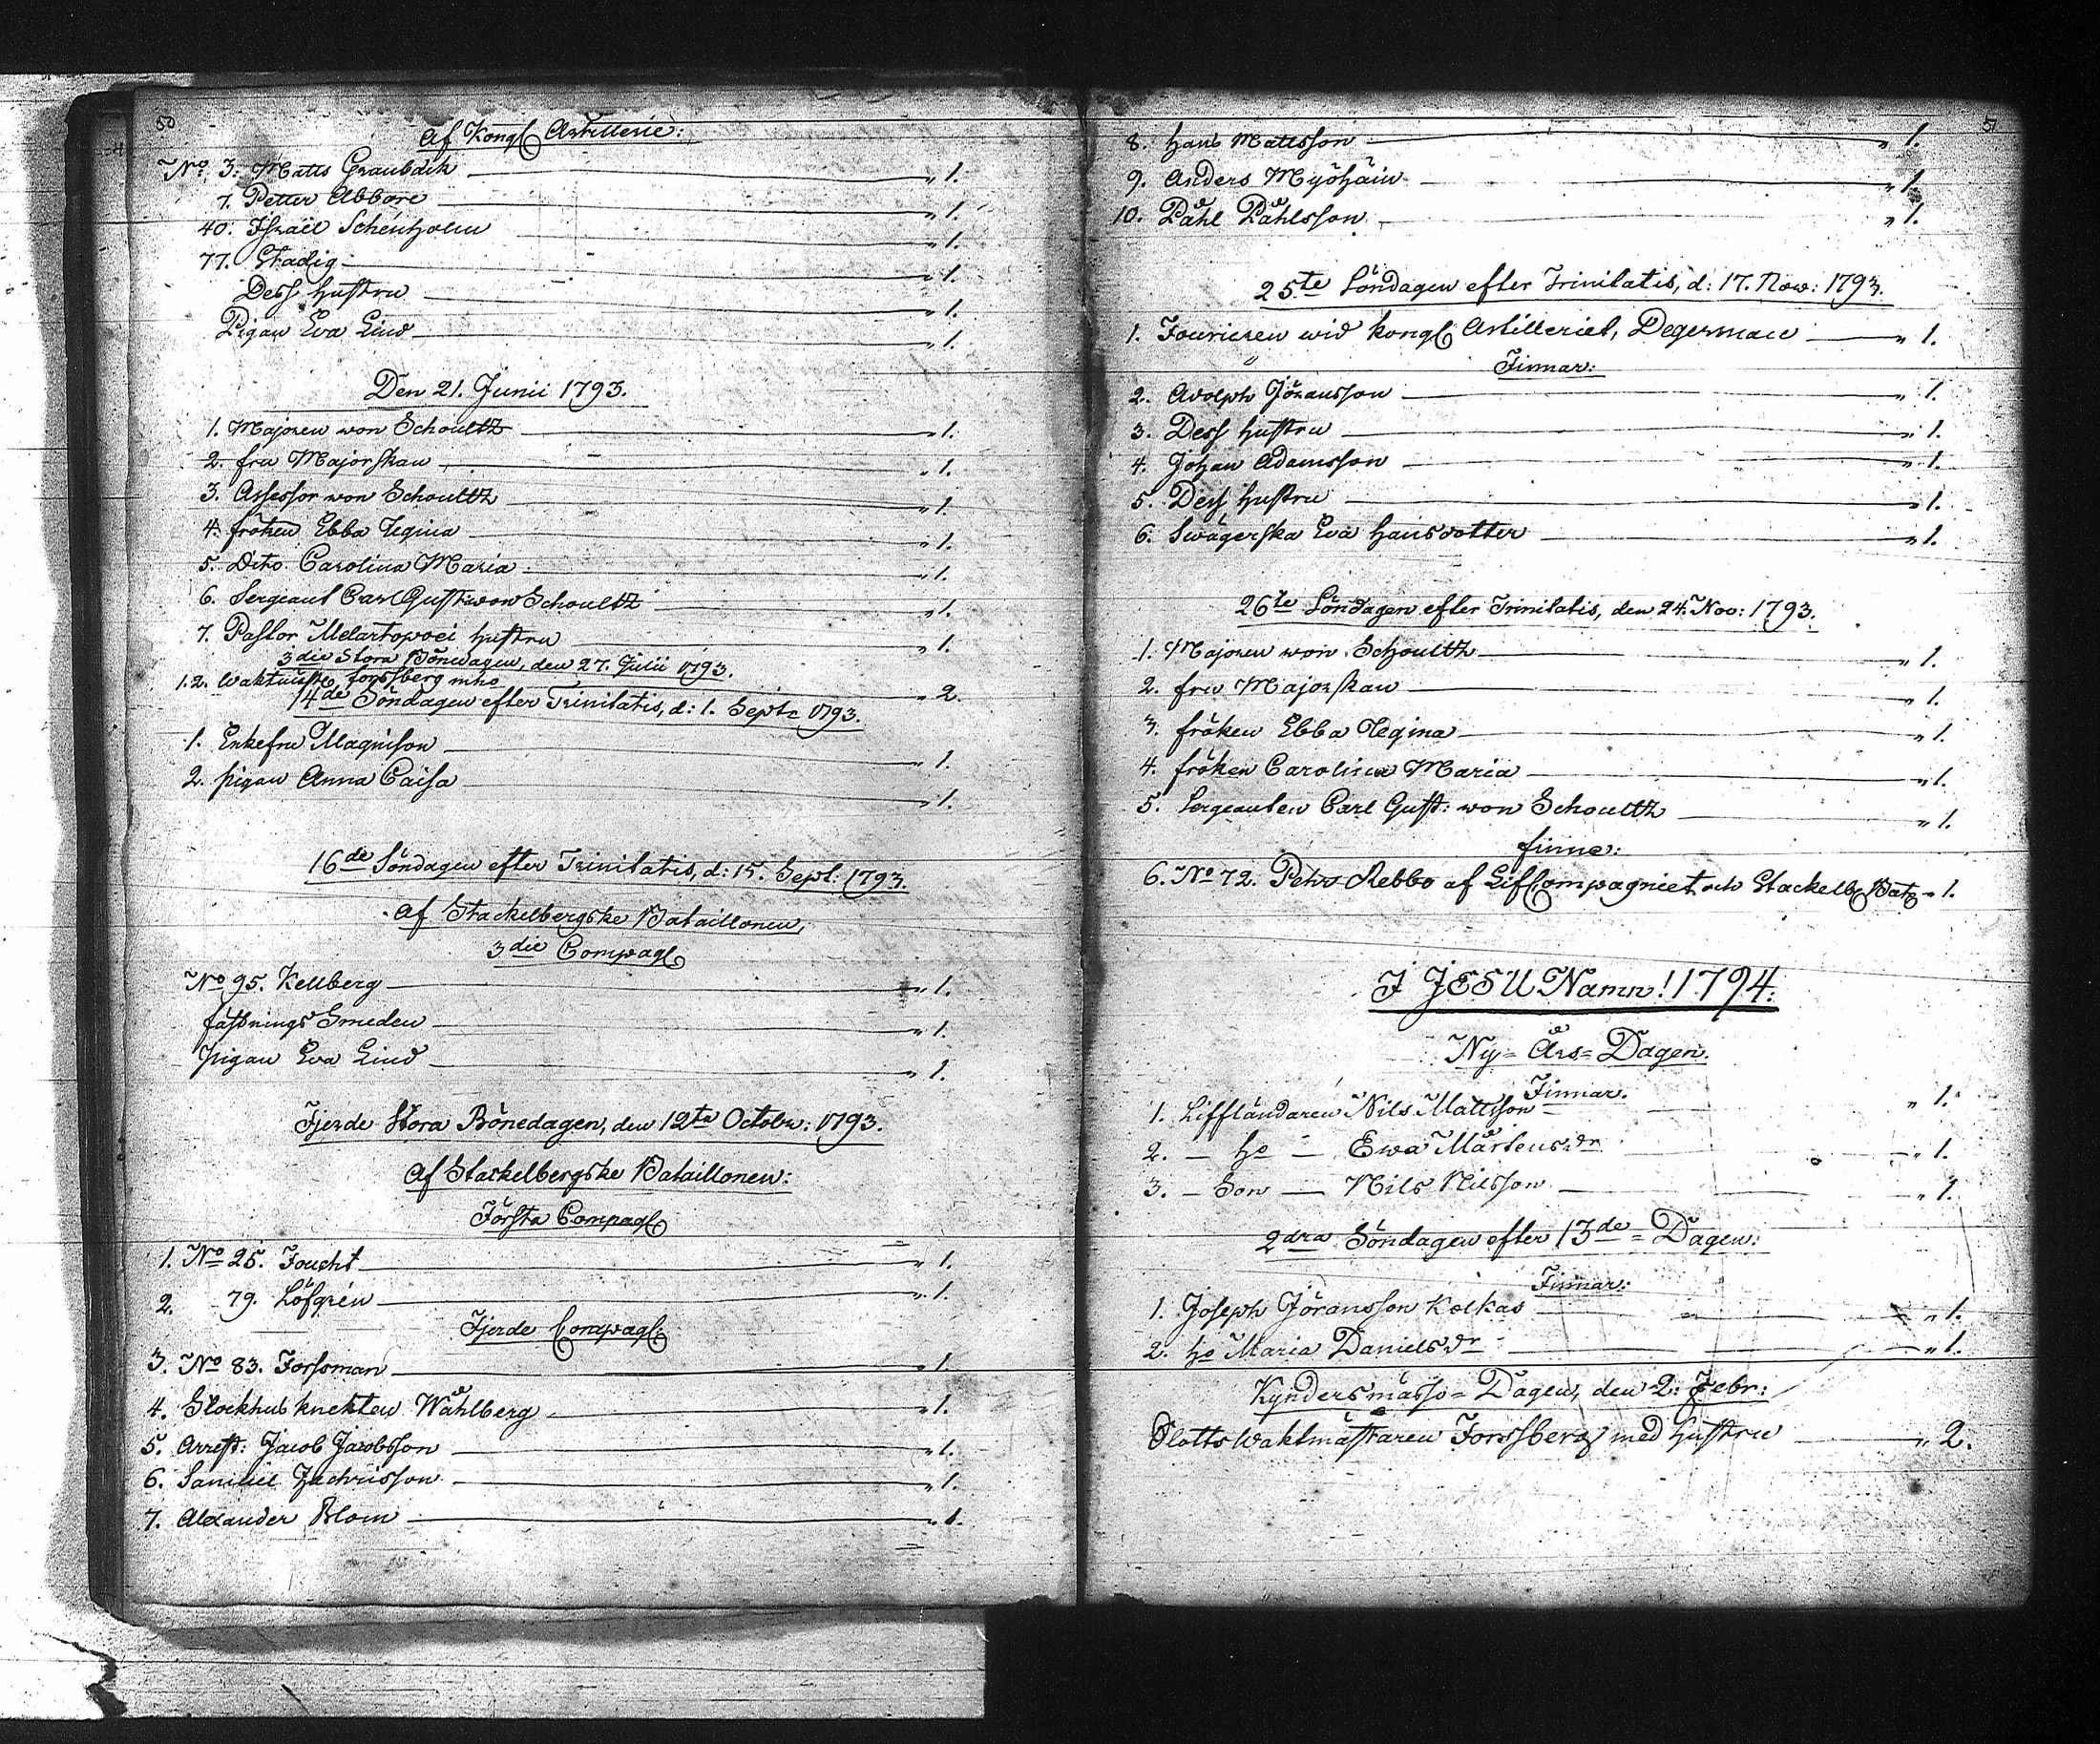 50
Af Kongl Artillerie:
No 3: Matts Graubäck „ 1.
7. Petter Abbore „ 1.
40. Israël Schénholm „ 1.
77. Stadig „ 1.
Dess hustru „ 1.
Pigan Eva Lind „ 1.
Den 21. Junii 1793.
1. Majoren von Schoultz „ 1.
2. fru Majorskan „ 1.
3. Assessor von Schoultz „ 1.
4. fröken Ebba Regina „ 1.
5. Dito Carolina Maria „ 1.
6. Sergeant Carl Gust: von Schoultz „ 1.
7. Pastor Melartopoei hustru „ 1.
3die Stora Bönedagen, den 27. Julii 1793.
1. 2. Forssberg mho „ 2.
14de Söndagen efter Trinitatis, d: 1. Septr 1793.
1. Enkefru Magnison „ 1.
2. pigan Anna Caisa „ 1.
16de Söndagen efter Trinitatis, d: 15. Sept: 1793.
Af Stackelbergske Bataillonen,
3die Compagl
No 95. Kellberg „ 1.
fästnings Smeden „ 1.
pigan Eva Lind „ 1.
Fjerde Stora Bönedagen, den 12te Octobr: 1793.
Af Stackelbergske Bataillonen:
Första Compagl
1. No 25. Foucht „ 1.
2. 79. Löfgrén „ 1.
Fjerde Compagl:
3. No 83. Forssman „ 1.
4. Stockhus knekten Wåhlberg „ 1.
5. Arrest: Jacob Jacobsson „ 1.
6. Samuel Zachrisson „ 1.
7. Alexander Blom „ 1.
51
8. Hans Mattsson „ 1.
9. Anders Myöhäin „ 1.
10. Påhl Påhlsson „ 1.
25te Söndagen efter Trinitatis, d: 17. Nov: 1793.
1. Fourieren wid kongl Artilleriet, Degerman „ 1.
Finnar:
2. Adolph Jöransson „ 1.
3. Dess hustru „ 1.
4. Johan Adamsson „ 1.
5. Dess hustru „ 1.
6. Swägerska Eva Hansdotter „ 1.
26te Söndagen efter Trinitatis, den 24. Nov: 1793.
1. Majoren von Schoultz „ 1.
2. fru Majorskan „ 1.
3. fröken Ebba Regina „ 1.
4. fröken Carolina Maria „ 1.
5. Sergeanten Carl Gust: von Schoultz „ 1.
finne:
6. No 72. Petr Rebbo af LifCompagniet och Stackelb Bat „ 1.
I JESU Namn! 1794.
Ny= Års= Dagen.
Finnar.
1. Liffländaren Nils Mattsson „ 1.
2. – ho – Ewa Mårtensdr „ 1.
3. – Son – Nils Nilsson „ 1.
2dra Söndagen efter 13de = Dagen:
Finnar:
1. Joseph Jöransson Kolkas „ 1.
2. ho Maria Danielsdr „ 1.
Kyndersmässo= Dagen, den 2: Febr:
SlottsWaktmästaren Forssberg med hustru „ 2.